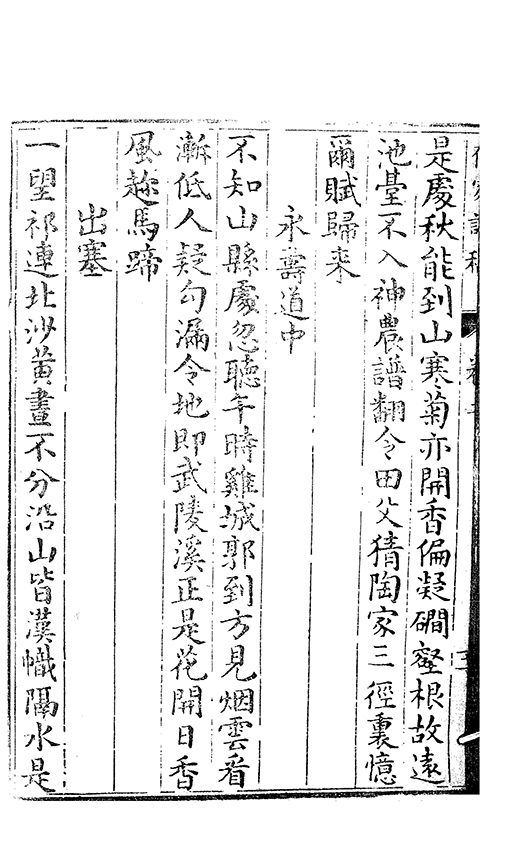 是處秋能到山寒菊亦開香偏凝磵壑根故遠
池臺不入神農譜翻令田父猜陶家三徑裏憶
爾賦歸來
永壽道中
不知山縣處忽聽午時雞城郭到方見烟雲看
漸低人疑勾漏令地即武陵溪正是花開日香
風趂馬蹄
出塞
一望祁連北沙黃晝不分沿山皆漢幟隔水是